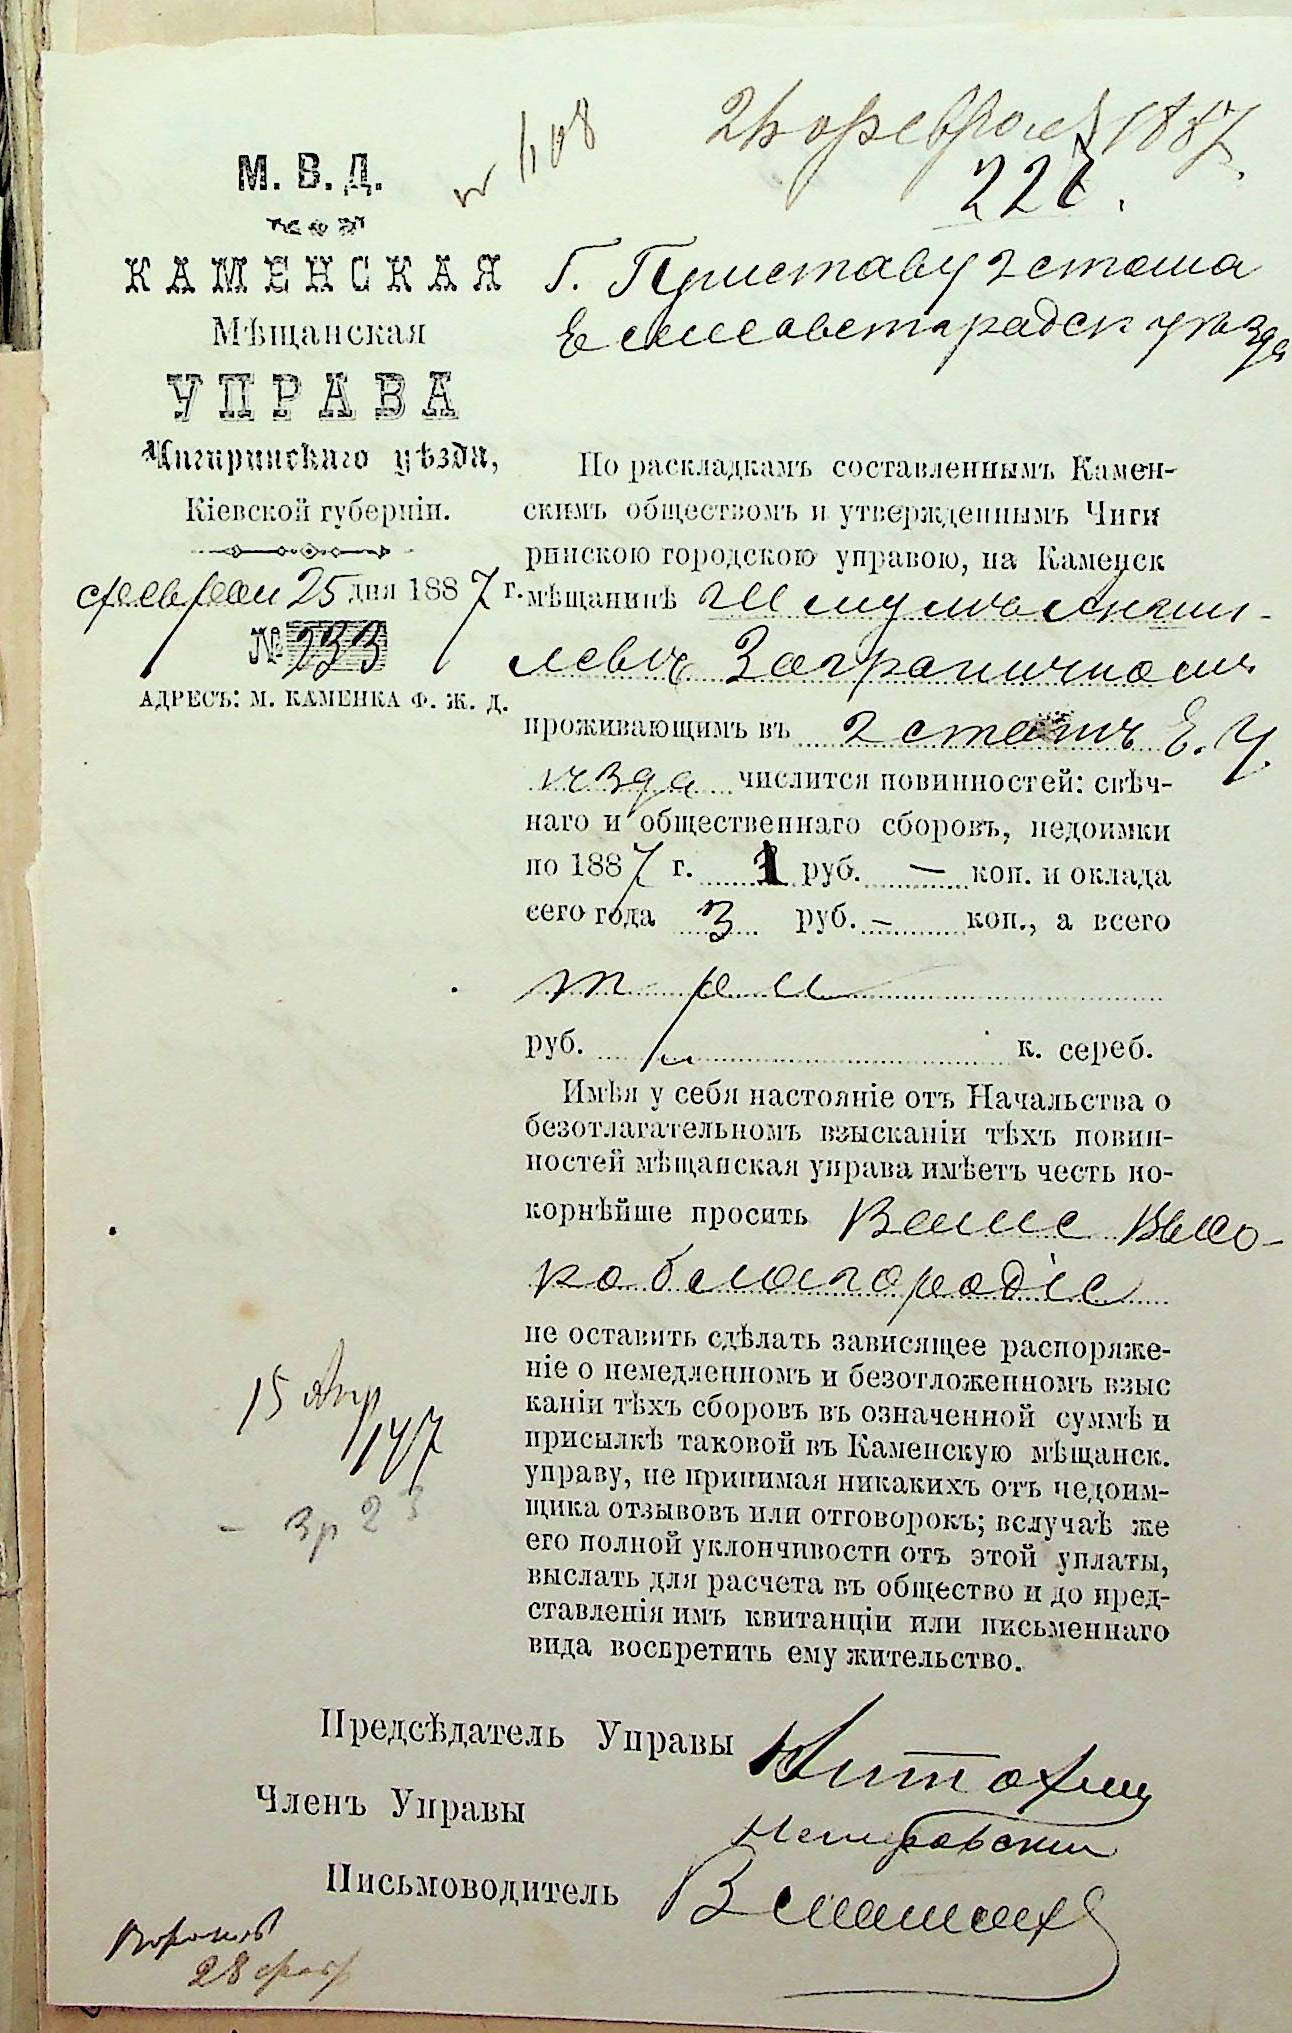 № 1108
февраля 1887.
227.
М. В. Д.
КАМЕНСКАЯ
Мѣщанская
УПРАВА
Чигиринскаго уѣзда,
Кіевской губерніи.
февраля 25 дня 1887 г.
№ 233
АДРЕСЪ: М. КАМЕНКА Ф. Ж. Д.
Г. Приставу 2 стана
Елисаветградск уѣзда
По раскладкамъ составленнымъ Камен-
скимъ обществомъ и утвержденнымъ Чиги
ринскою городскою управою, на Каменск
мѣщанинѣ Шмулѣ
левѣ Заграничномъ
проживающимъ въ 2 станѣ Е. У.
ѣзда числится повинностей: свѣч-
наго и общественнаго сборовъ, недоимки
по 1887 г. 1 руб. — коп. и оклада
сего года 3 руб. — коп., а всего
три
руб. к. сереб.
Имѣя у себя настояніе отъ Начальства о
безотлагательномъ взысканіи тѣхъ повин-
ностей мѣщанская управа имѣетъ честь по-
корнѣйше просить Ваше Высо-
коблагородіе
не оставить сдѣлать зависящее распоряже-
ніе о немедленномъ и безотложенномъ взыс
каніи тѣхъ сборовъ въ означенной суммѣ и
присылкѣ таковой въ Каменскую мѣщанск.
управу, не принимая никакихъ отъ недоим-
щика отзывовъ или отговорокъ; вслучаѣ же
его полной уклончивости отъ этой уплаты,
выслать для расчета въ общество и до пред-
ставленія имъ квитанціи или письменнаго
вида воспретить ему жительство.
15 Апр
147
— 3 р 23
Предсѣдатель Управы
Членъ Управы
Письмоводитель
28 февр